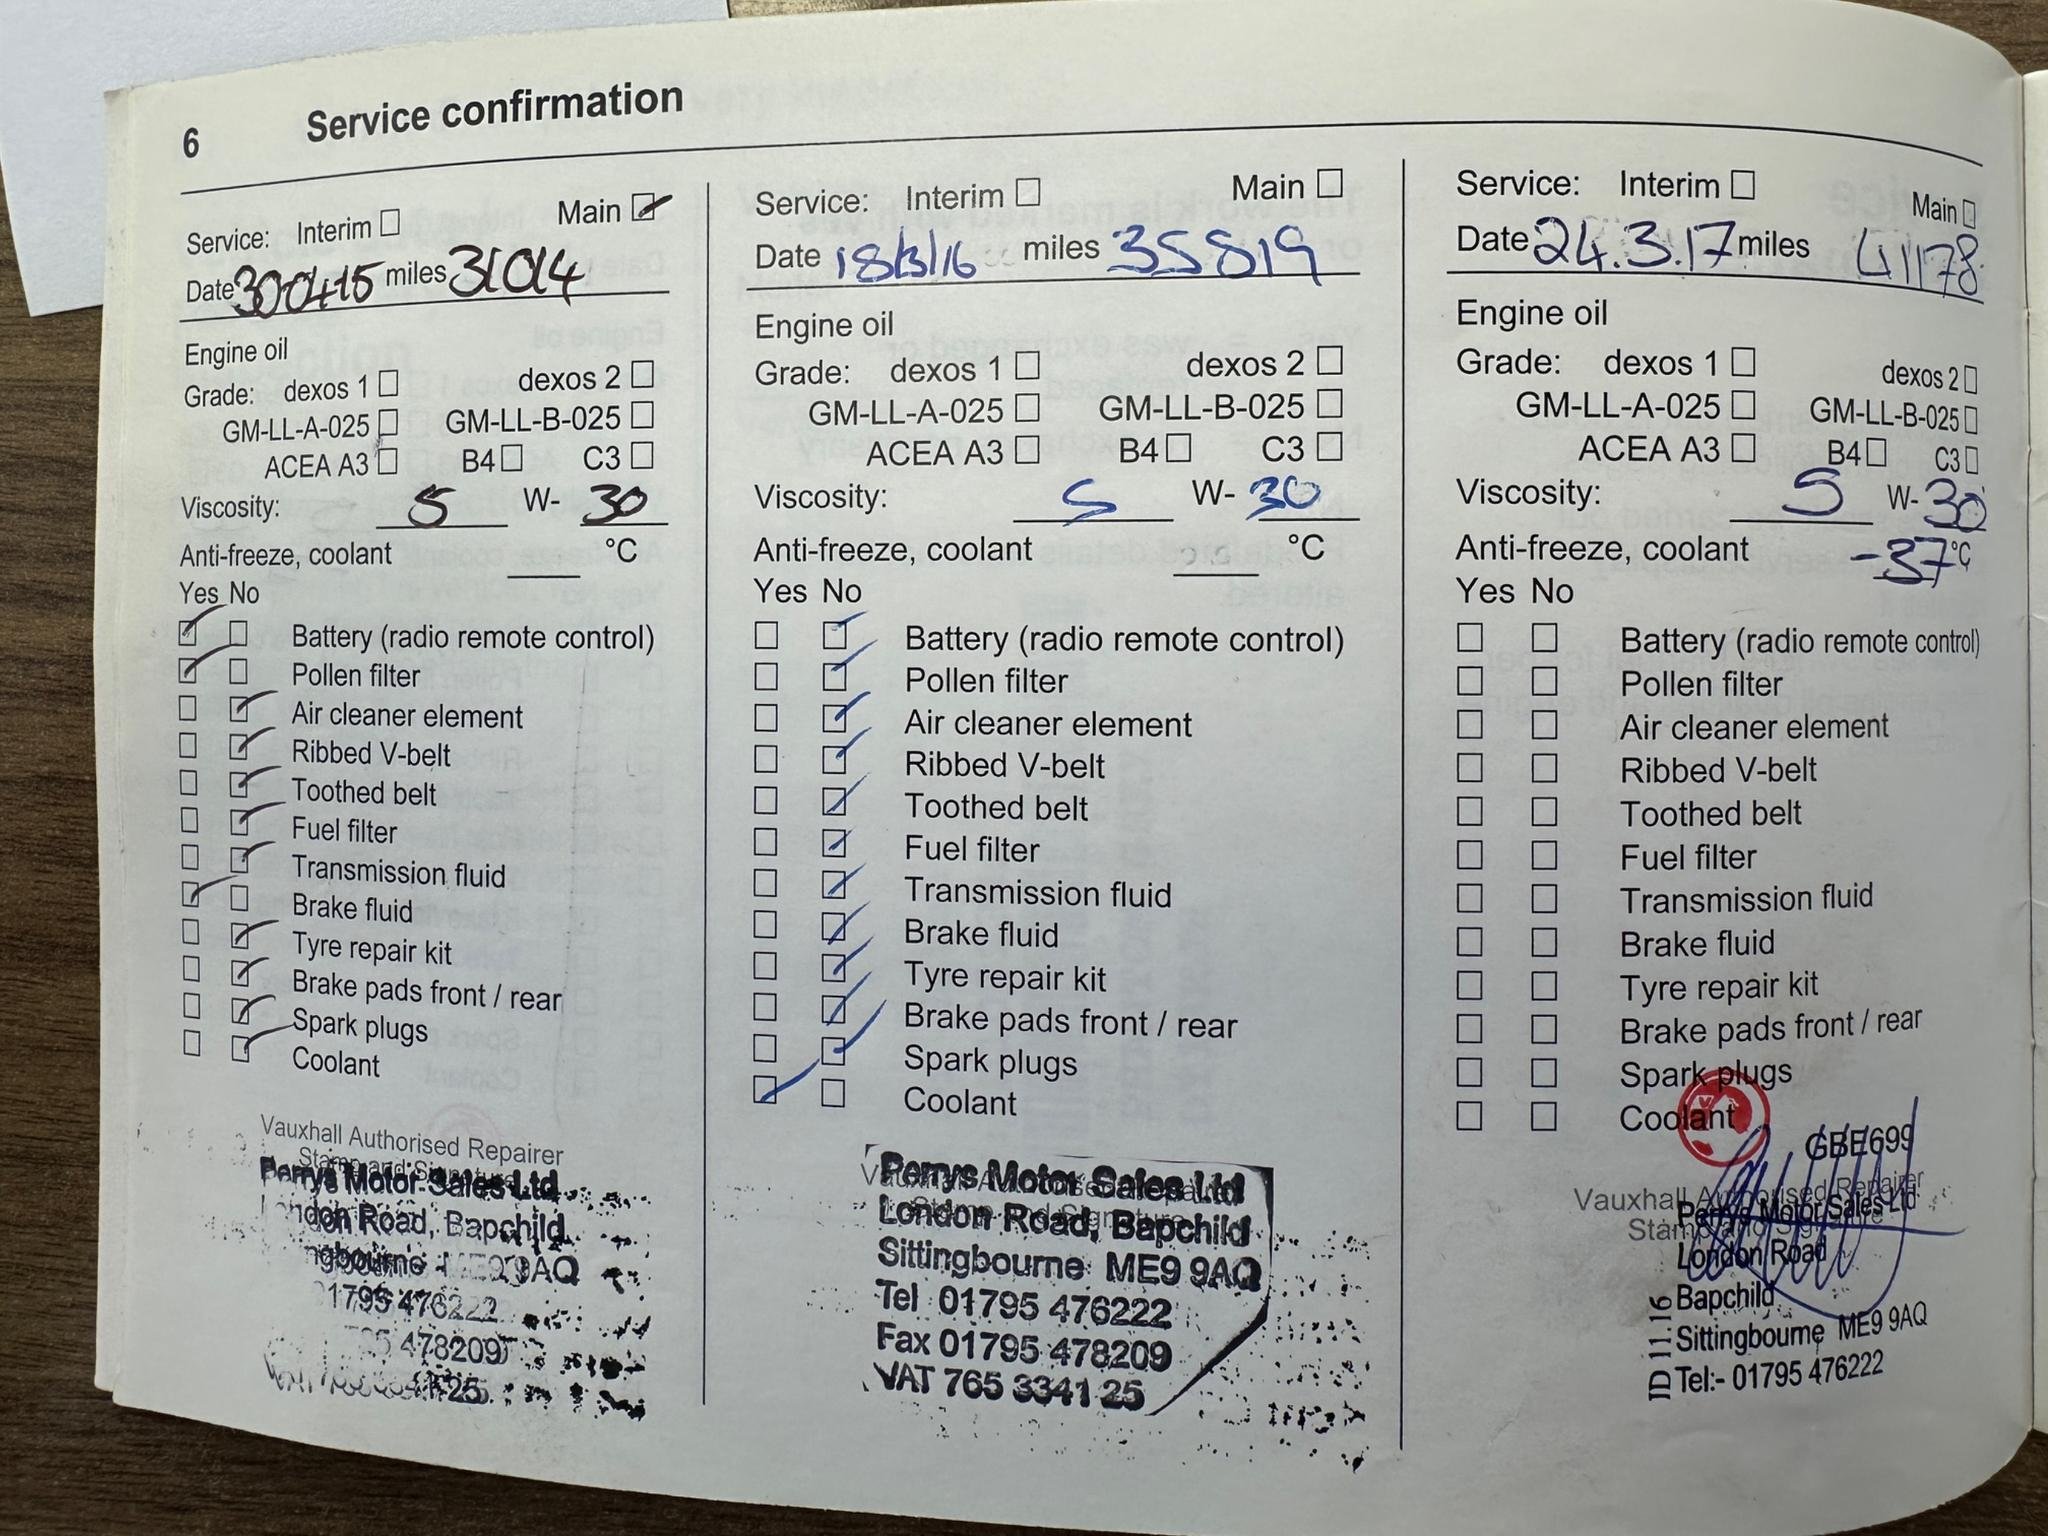 6 Service confirmation
Service: Interim Main
Date 30-04-15 miles 31014
Engine oil
Grade: dexos 1 dexos 2
GM-LL-A-025 GM-LL-B-025
ACEA A3 B4 C3
Viscosity: 5 W- 30
Anti-freeze, coolant °C
Yes No
Battery (radio remote control)
Pollen filter
Air cleaner element
Ribbed V-belt
Toothed belt
Fuel filter
Transmission fluid
Brake fluid
Tyre repair kit
Brake pads front / rear
Spark plugs
Coolant
Vauxhall Authorised Repairer
Stamp and Signature
Perrys Motor Sales Ltd
London Road, Bapchild
ME9 9AQ
01795 476222
478209
Service: Interim Main
Date 18/3/16 miles 35819
Engine oil
Grade: dexos 1 dexos 2
GM-LL-A-025 GM-LL-B-025
ACEA A3 B4 C3
Viscosity: 5 W- 30
Anti-freeze, coolant °C
Yes No
Battery (radio remote control)
Pollen filter
Air cleaner element
Ribbed V-belt
Toothed belt
Fuel filter
Transmission fluid
Brake fluid
Tyre repair kit
Brake pads front / rear
Spark plugs
Coolant
Vauxhall Authorised Repairer
Stamp and Signature
Perrys Motor Sales Ltd
London Road, Bapchild
Sittingbourne ME9 9AQ
Tel 01795 476222
Fax 01795 478209
VAT 765 3341 25
Service: Interim Main
Date 24.3.17 miles 41178
Engine oil
Grade: dexos 1 dexos 2
GM-LL-A-025 GM-LL-B-025
ACEA A3 B4 C3
Viscosity: 5 W- 30
Anti-freeze, coolant -37 °C
Yes No
Battery (radio remote control)
Pollen filter
Air cleaner element
Ribbed V-belt
Toothed belt
Fuel filter
Transmission fluid
Brake fluid
Tyre repair kit
Brake pads front / rear
Spark plugs
Coolant
GBE699
Vauxhall Authorised Repairer
Stamp and Signature
Perrys Motor Sales Ltd
London Road
Bapchild
Sittingbourne ME9 9AQ
Tel:- 01795 476222
ID 11.16